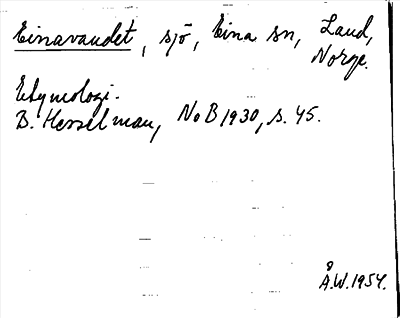 Einavandet, sjö, Eina sn, Land,
Norge.
Etymologi.
B. Hesselman, NoB 1930, s. 45.
Å.W. 1954.